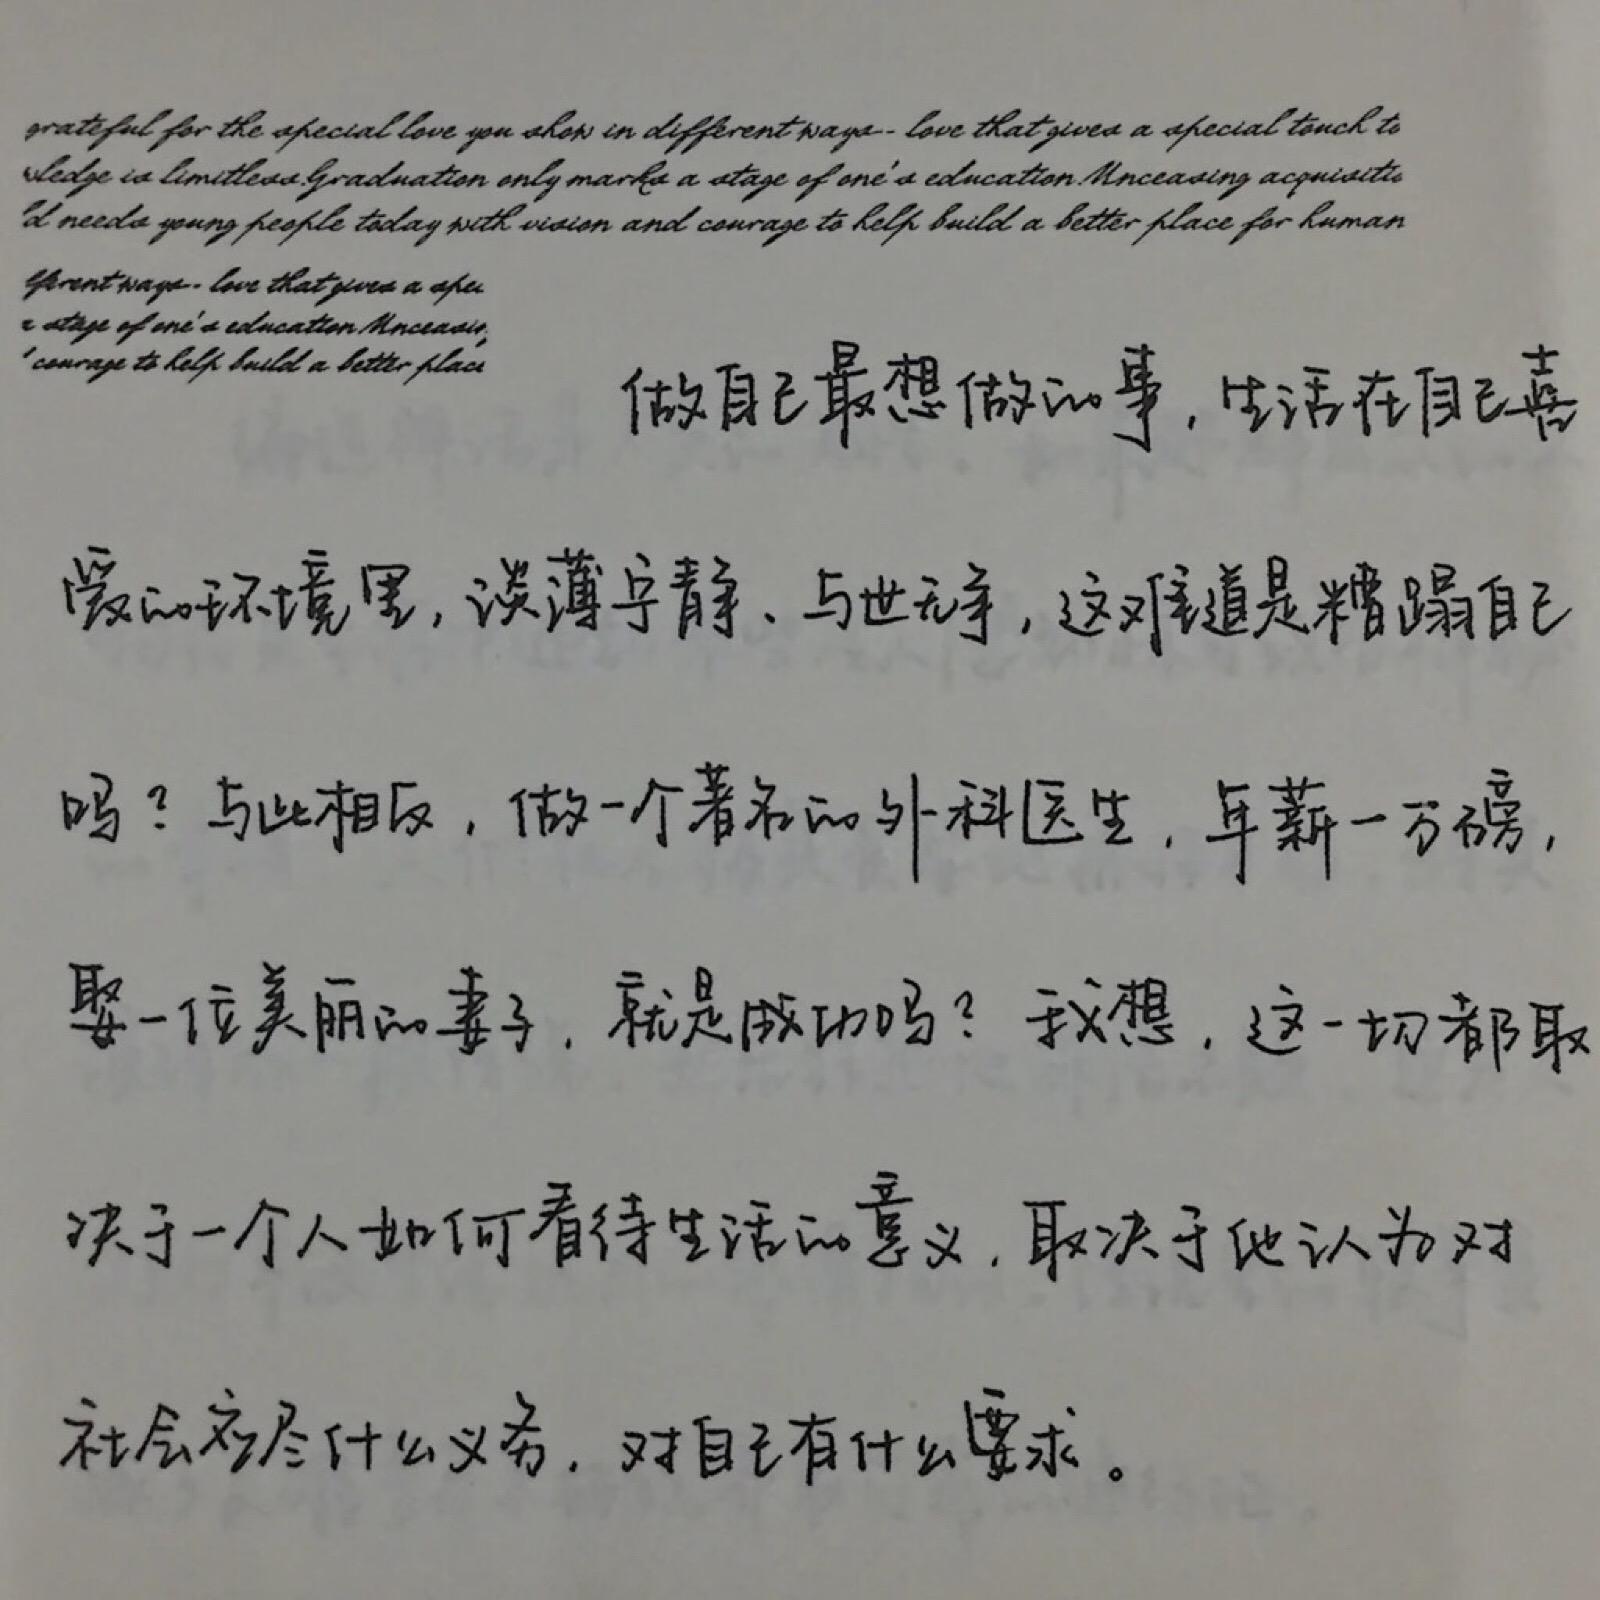 grateful for the special love you show in different ways-- love that gives a special touch to
ledge is limitless. Graduation only marks a stage of one's education. Unceasing acquisitio
d needs young people today with vision and courage to help build a better place for human
fferent ways-- love that gives a spec
a stage of one's education. Unceasin
courage to help build a better place
做自己最想做的事，生活在自己喜
爱的环境里，淡薄宁静、与世无争，这难道是糟蹋自己
吗？与此相反，做一个著名的外科医生，年薪一万磅，
娶一位美丽的妻子，就是成功吗？我想，这一切都取
决于一个人如何看待生活的意义，取决于他认为对
社会应尽什么义务，对自己有什么要求。